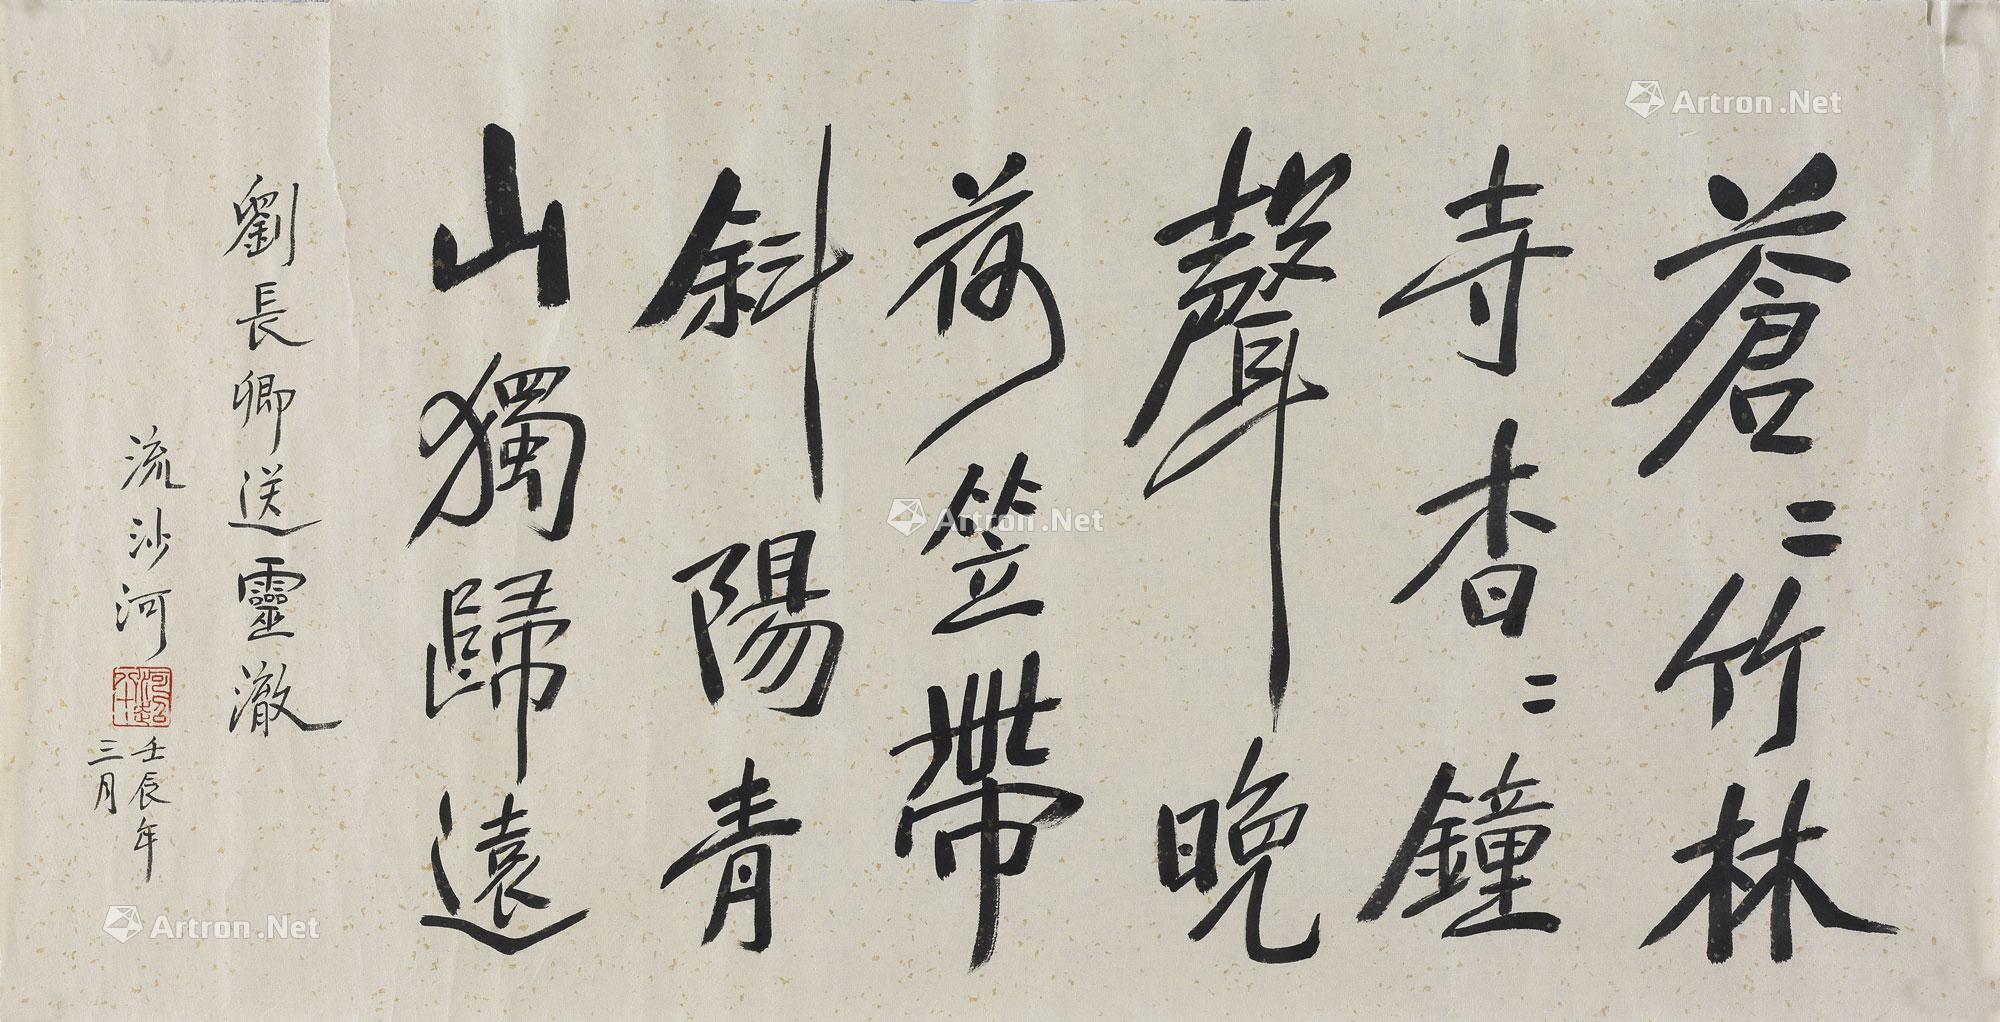 蒼〻竹林
寺杳〻鐘
聲晚
荷笠帶
斜陽青
山獨歸遠
劉長卿送靈澈
流沙河
壬辰年
三月
Artron.Net
Artron.Net
Artron.Net